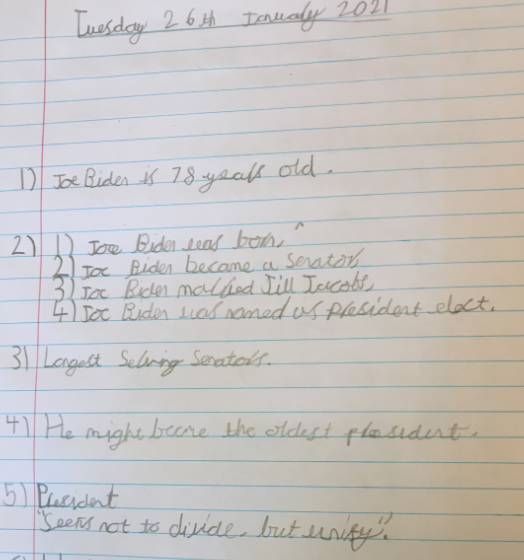 Tuesday 26th January 2021
1) Joe Biden is 78 years old.
2) 1) Joe Biden was born,
2) Joe Biden became a Senator,
3) Joe Biden married Jill Jacobs,
4) Joe Biden was named us president elect.
3) Longest Serving Senators.
4) He might become the oldest president.
5) President
"Seeks not to divide, but unify".